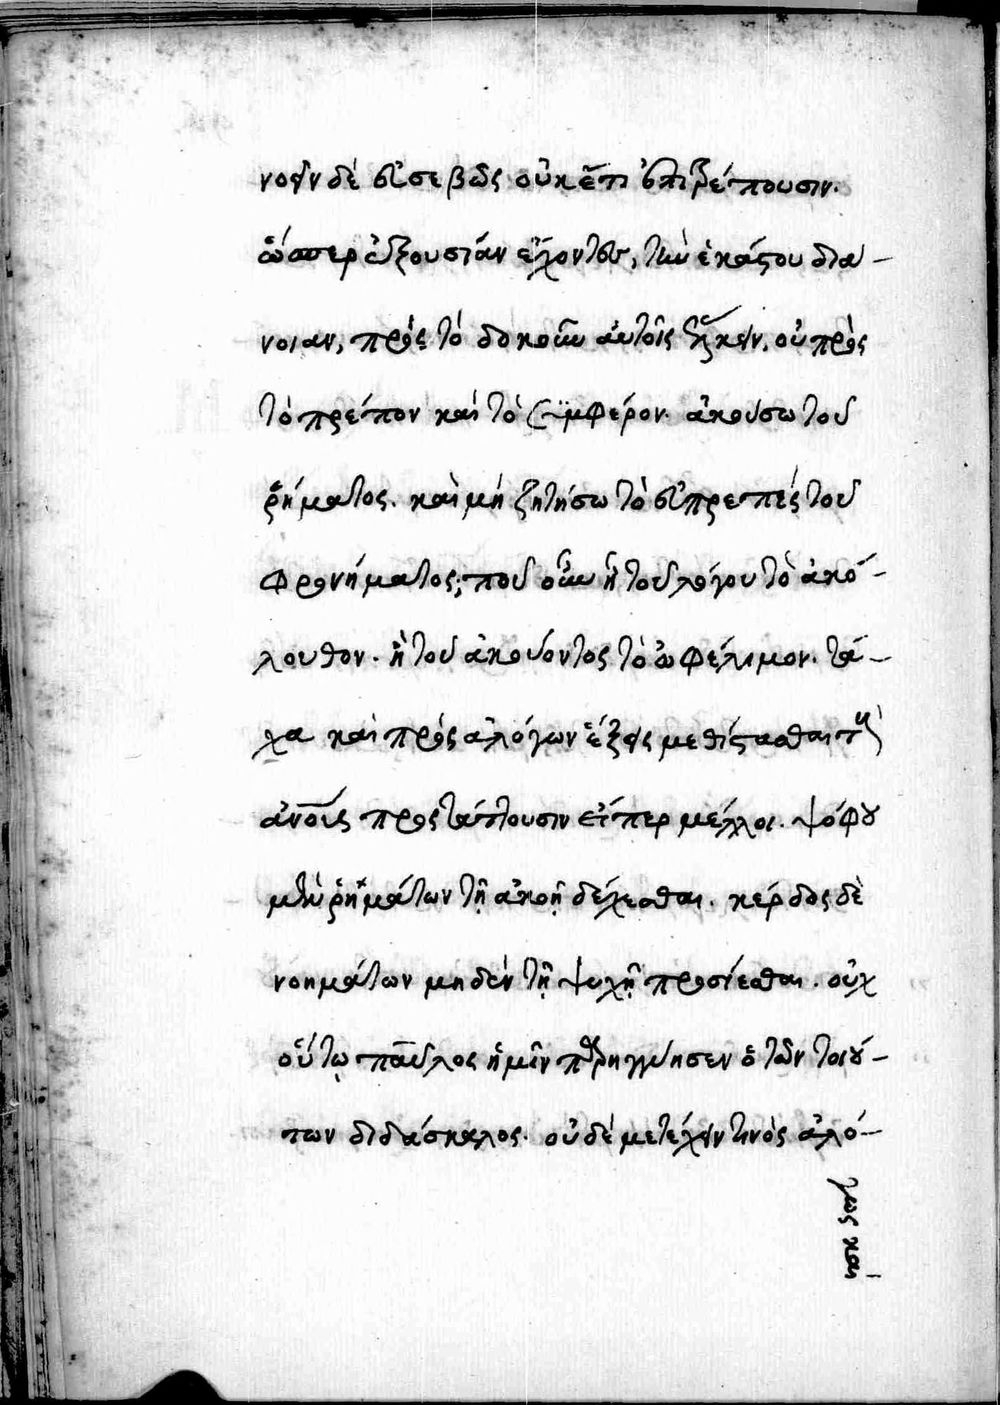 νοεῖν δὲ εὐσεβῶς οὐκέτι ἐπιτρέπουσιν.
ὥσπερ ἐξουσίαν ἔχοντες, τὴν ἑκάστου διά-
νοιαν, πρὸς τὸ δοκοῦν αὐτοῖς ἕλκειν, οὐ πρὸς
τὸ πρέπον καὶ τὸ συμφέρον. ἀκούσω τοῦ
ῥήματος. καὶ μὴ ζητήσω τὸ εὐπρεπὲς τοῦ
φρονήματος; ποῦ οὖν ἢ τοῦ λόγου τὸ ἀκό-
λουθον. ἢ τοῦ ἀκούοντος τὸ ὠφέλιμον. τά-
χα καὶ πρὸς ἀλόγων ἕξεις μεθίστασθαι τοῖς
ἀνοις προστάττουσιν εἴπερ μέλλοι. ψόφου
μὲν ῥημάτων τῇ ἀκοῇ δέχεσθαι. κέρδος δὲ
νοημάτων μηδὲν τῇ ψυχῇ προσίεσθαι. οὐχ
οὕτω παῦλος ἡμῖν παρηγγύησεν ὁ τῶν τοιού-
των διδάσκαλος. οὐδὲ μετέχειν τινὸς ἀλό-
γως καὶ